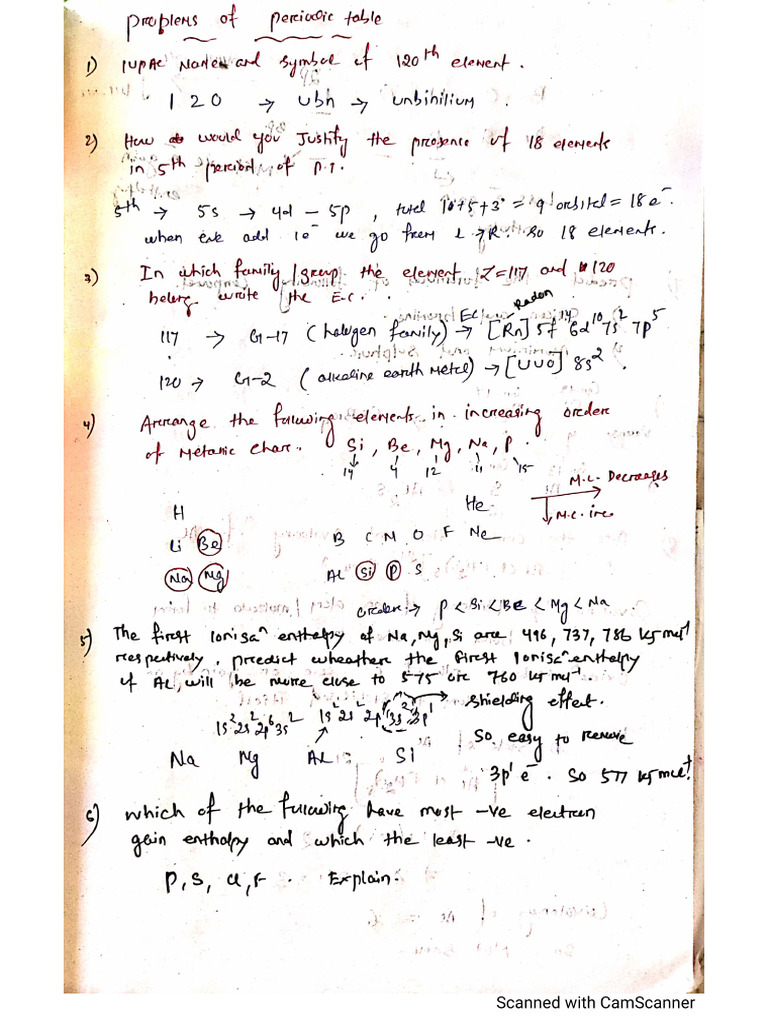 Problems of periodic table
1) IUPAC Name and symbol of 120th element.
1 2 0 → Ubn → Unbinilium.
2) How would you Justify the presence of 18 elements
in 5th period of P.T.
5th → 5s → 4d – 5p, total 1+5+3 = 9 orbital = 18 e⁻.
when we add 1e⁻ we go from L → R. So 18 elements.
3) In which family/group the element Z=117 and 120
belong write the E.C.
Radon
EC
117 → G-17 (halogen family) → [Rn] 5f¹⁴ 6d¹⁰ 7s² 7p⁵
120 → G-2 (alkaline earth Metal) → [UUO] 8s².
4) Arrange the following elements in increasing order
of Metallic Char. Si, Be, Mg, Na, P.
14 4 12 11 15
M.C. Decreases
M.C. inc
H He
Li Be B C N O F Ne
Na Mg AL Si P S
order → P < Si < Be < Mg < Na
5) The first Ionisaⁿ enthalpy of Na, Mg, Si are 496, 737, 786 kJ mol⁻¹
respectively. predict wheather the first Ionisaⁿ enthalpy
of AL, will be more close to 575 or 760 kJ mol⁻¹
1s²2s²2p⁶3s² 1s²2s²2p⁶3s²3p¹ → shielding effect.
So easy to remove
Na Mg AL Si
3p¹ e⁻. So 577 kJ mol⁻¹
6) which of the following have most -ve electron
gain enthalpy and which the least -ve.
P, S, Cl, F. Explain.
Scanned with CamScanner